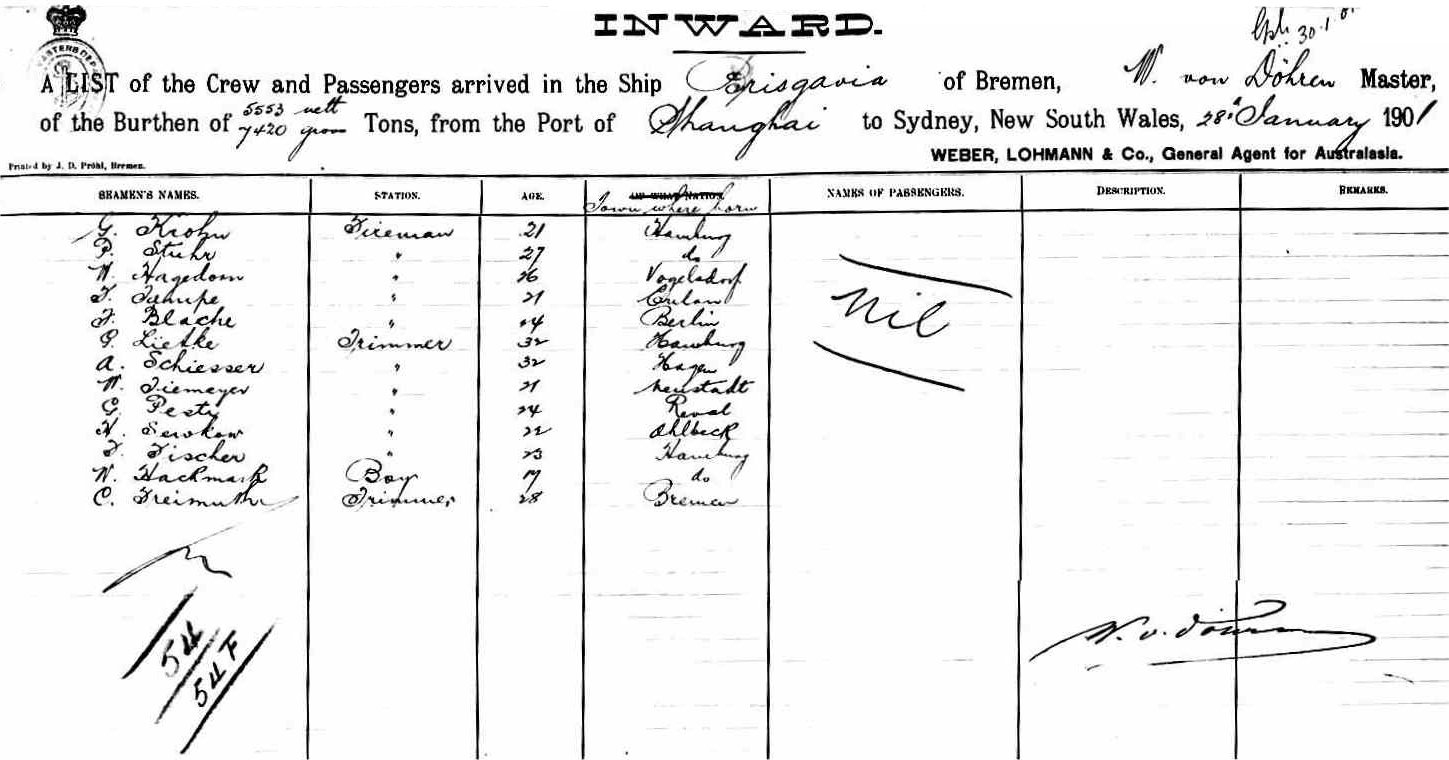 INWARD.
30.1.01
A LIST of the Crew and Passengers arrived in the Ship Brisgavia of Bremen, W. von Döhren Master,
of the Burthen of 5553 nett 7420 gross Tons, from the Port of Shanghai to Sydney, New South Wales, 28th January 1901
WEBER, LOHMANN & Co., General Agent for Australasia.
Printed by J. D. Pröhl, Bremen.
SEAMEN'S NAMES. STATION. AGE. OF WHAT NATION. NAMES OF PASSENGERS. DESCRIPTION. REMARKS.
Town where born
G. Krohn Fireman 21 Hamburg
P. Stuhr " 27 do
W. Hagedorn " 26 Vogelsdorf
" 21
F. Blache " 24 Berlin
G. Lietke Trimmer 32 Hamburg
A. Schiesser " 32 Hagen
W. Tiemeyer " 21 Neustadt
G. Pesty " 24 Reval
" 22 Ahlbeck
F. Fischer " 23 Hamburg
W. Hackmack Boy 17 do
C. Freimuth Trimmer 28 Bremen
Nil
54
54 F
W. v. Döhren